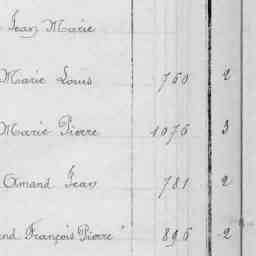 Jean Marie
Marie Louis 760 2
Marie Pierre 1076 3
Amand Jean 781 2
François Pierre 896 2